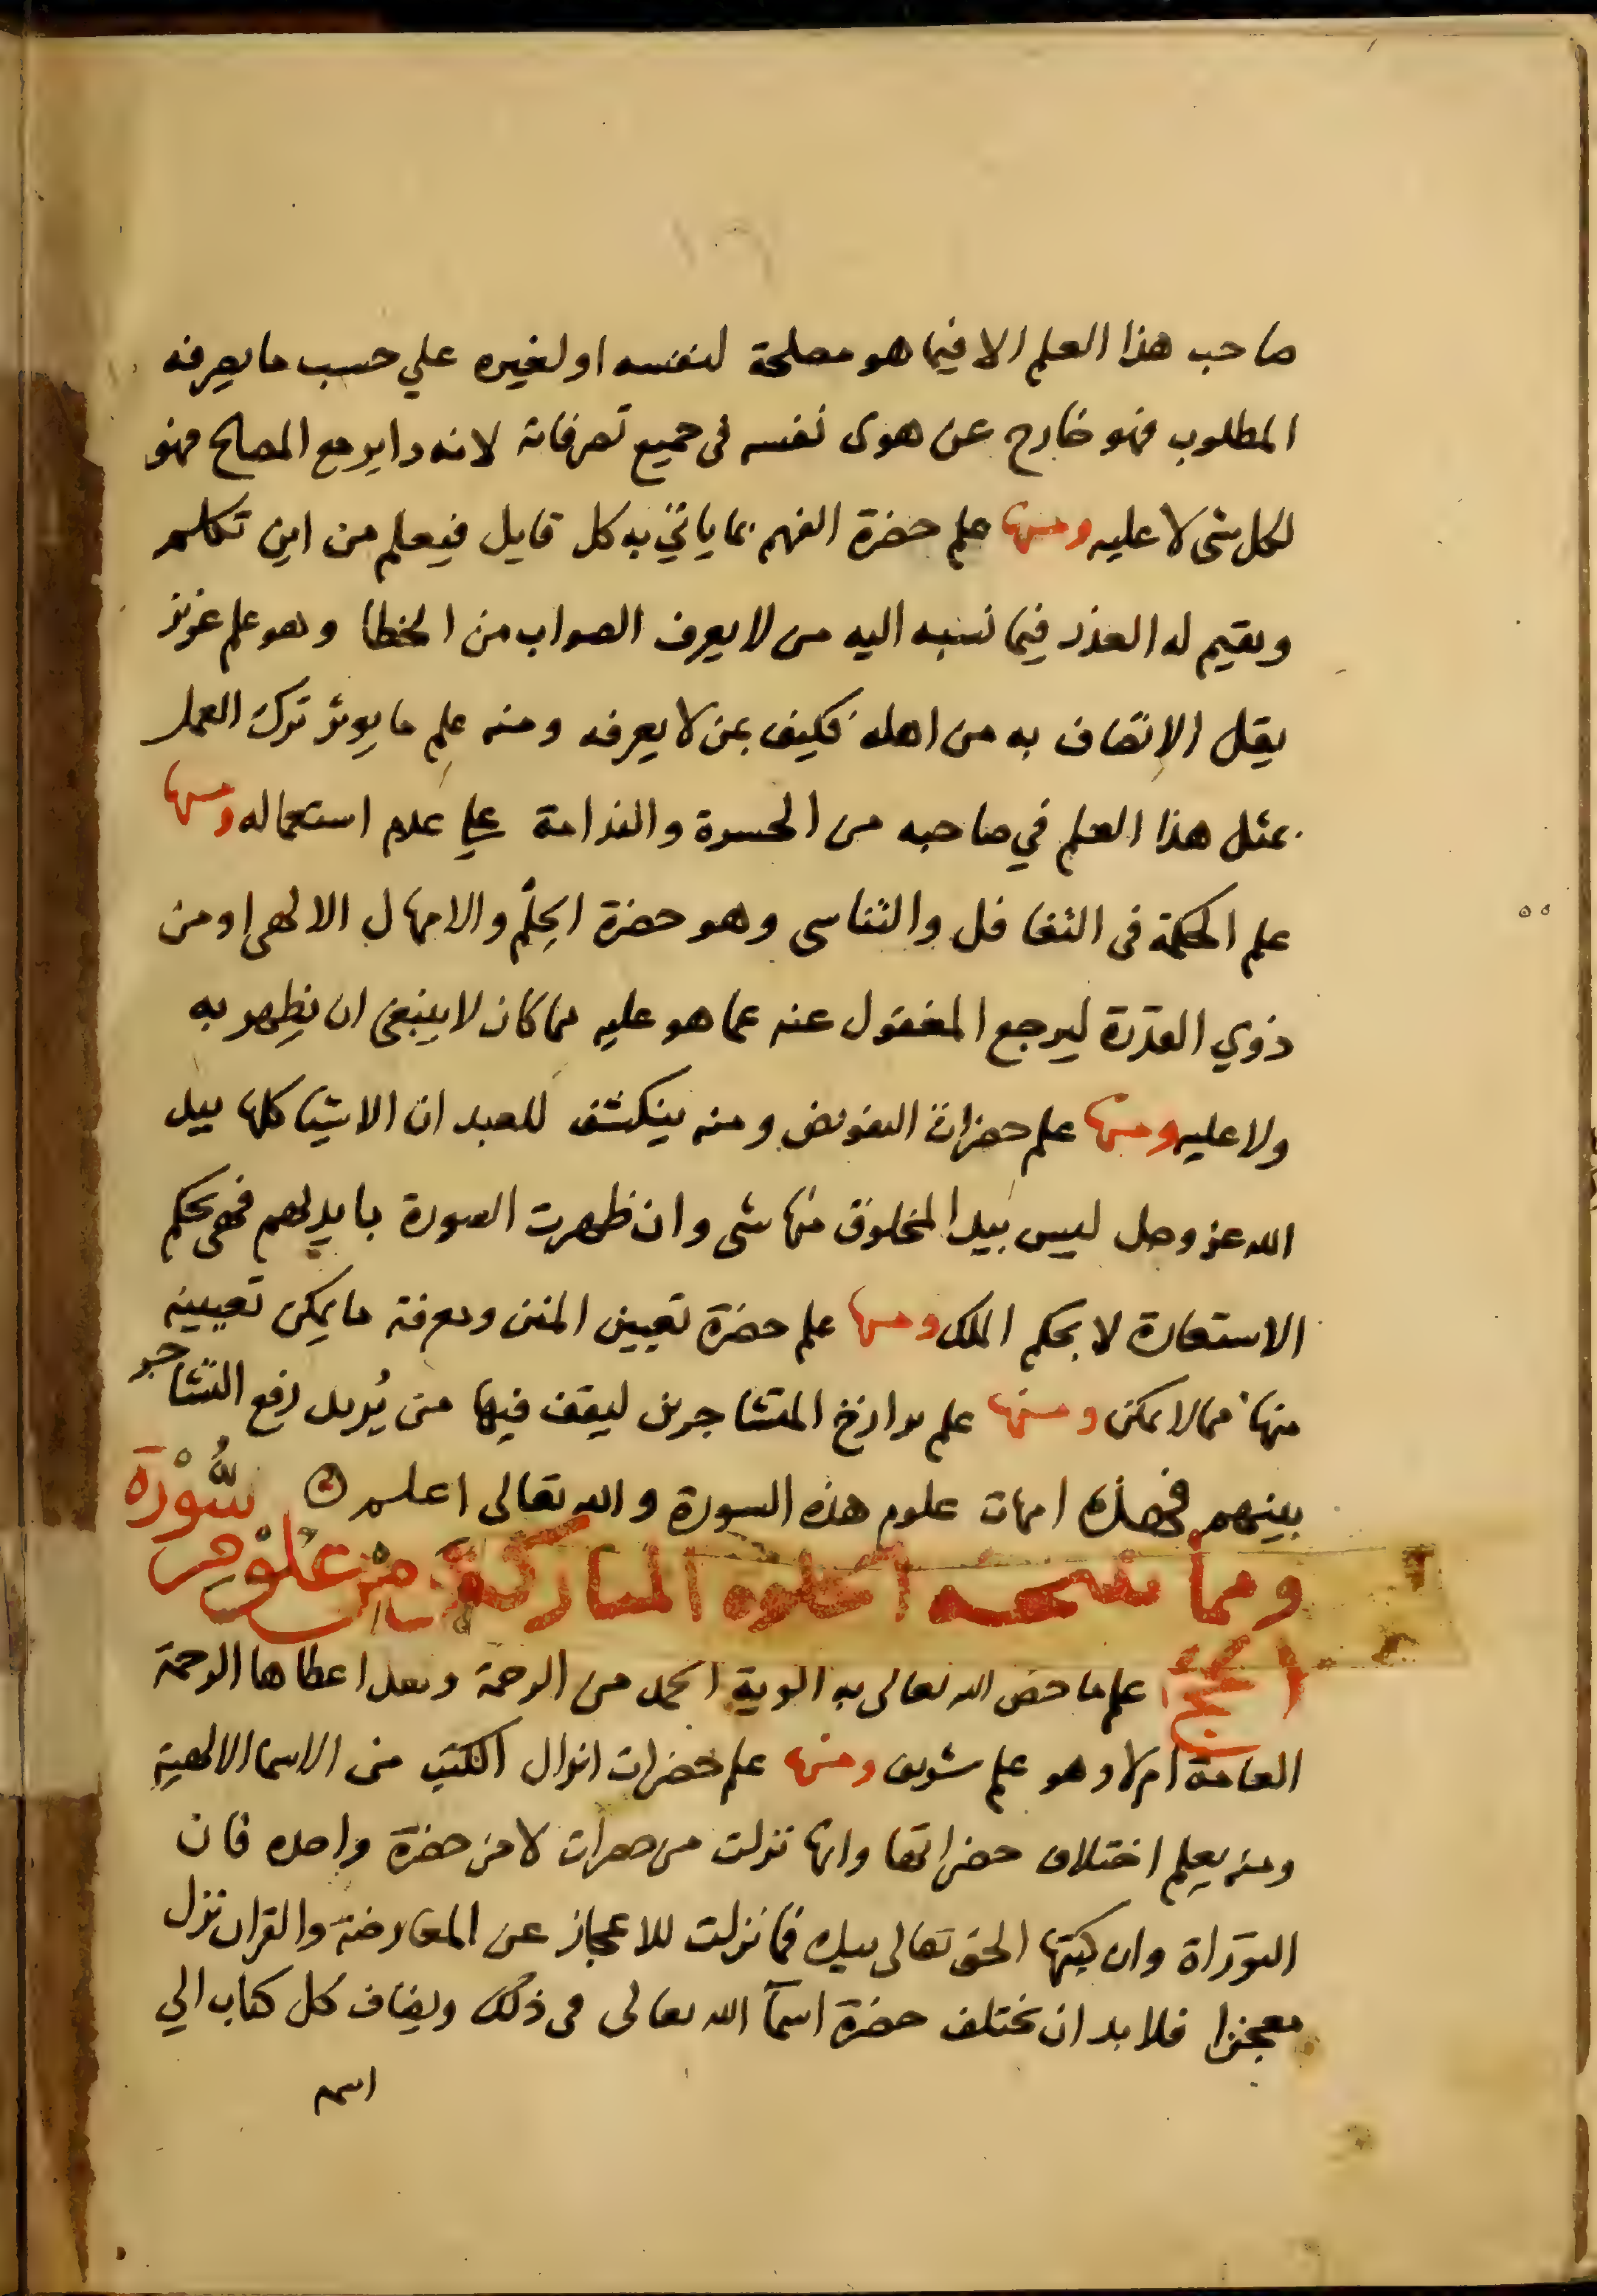 صاحب هذا العلم الا فيما هو مصلحة لنفسه او لغيره علي حسب ما يعرفه
المطلوب فهو خارج عن هوى نفسه في جميع تصرفاته لانه داير مع المصالح فهو
لكل شى لا عليه ومنها علم حضرة الفهم بما ياتي به كل قايل فيعلم من اين تكلم
ويقيم له العذر فيما نسبه اليه من لا يعرف الصواب من الخطا وهو علم عزيز
يقل الانصاف به من اهله فكيف بمن لا يعرفه ومنه علم ما يوثر ترك العمل
بمثل هذا العلم في صاحبه من الحسرة والندامة علي عدم استعماله ومنها
علم الحكمة في التغافل والتناسي وهو حضرة الحِلْم والامهال الالهي او من
ذوي القدرة ليرجع المغفول عنه عما هو عليه مما كان لا ينبغي ان يظهر به
ولا عليه ومنها علم حضرات التفويض ومنه ينكشف للعبد ان الاشيا كلها بيد
الله عز وجل ليس بيد المخلوق منها شى وان ظهرت الصورة بايديهم فهي بحكم
الاستعارة لا بحكم الملك ومنها علم حضرة تعيين المنن ومعرفة ما يمكن تعيينه
منها مما لا يمكن ومنها علم برازخ المتشاجرين ليقف فيها من يُريد رفع التشاجر
بينهم فهذه امهات علوم هذه السورة والله تعالى اعلم
ومما المباركة من علوم سُورَة
الحج علم ما خص الله تعالى به الوية الحمد من الرحمة وبعد اعطاها الرحمة
العامة ام لا وهو علم شريف ومنها علم حضرات انزال الكتب من الاسما الالهية
ومنه يعلم اختلاف حضراتها وانها نزلت من حضرات لا من حضرة واحده فان
التوراة وان كتبها الحق تعالى بيده فما نزلت للاعجاز عن المعارضة والقران نزل
معجزا فلا بد ان تختلف حضرة اسمآ الله تعالى في ذلك ويضاف كل كتاب الي
اسم